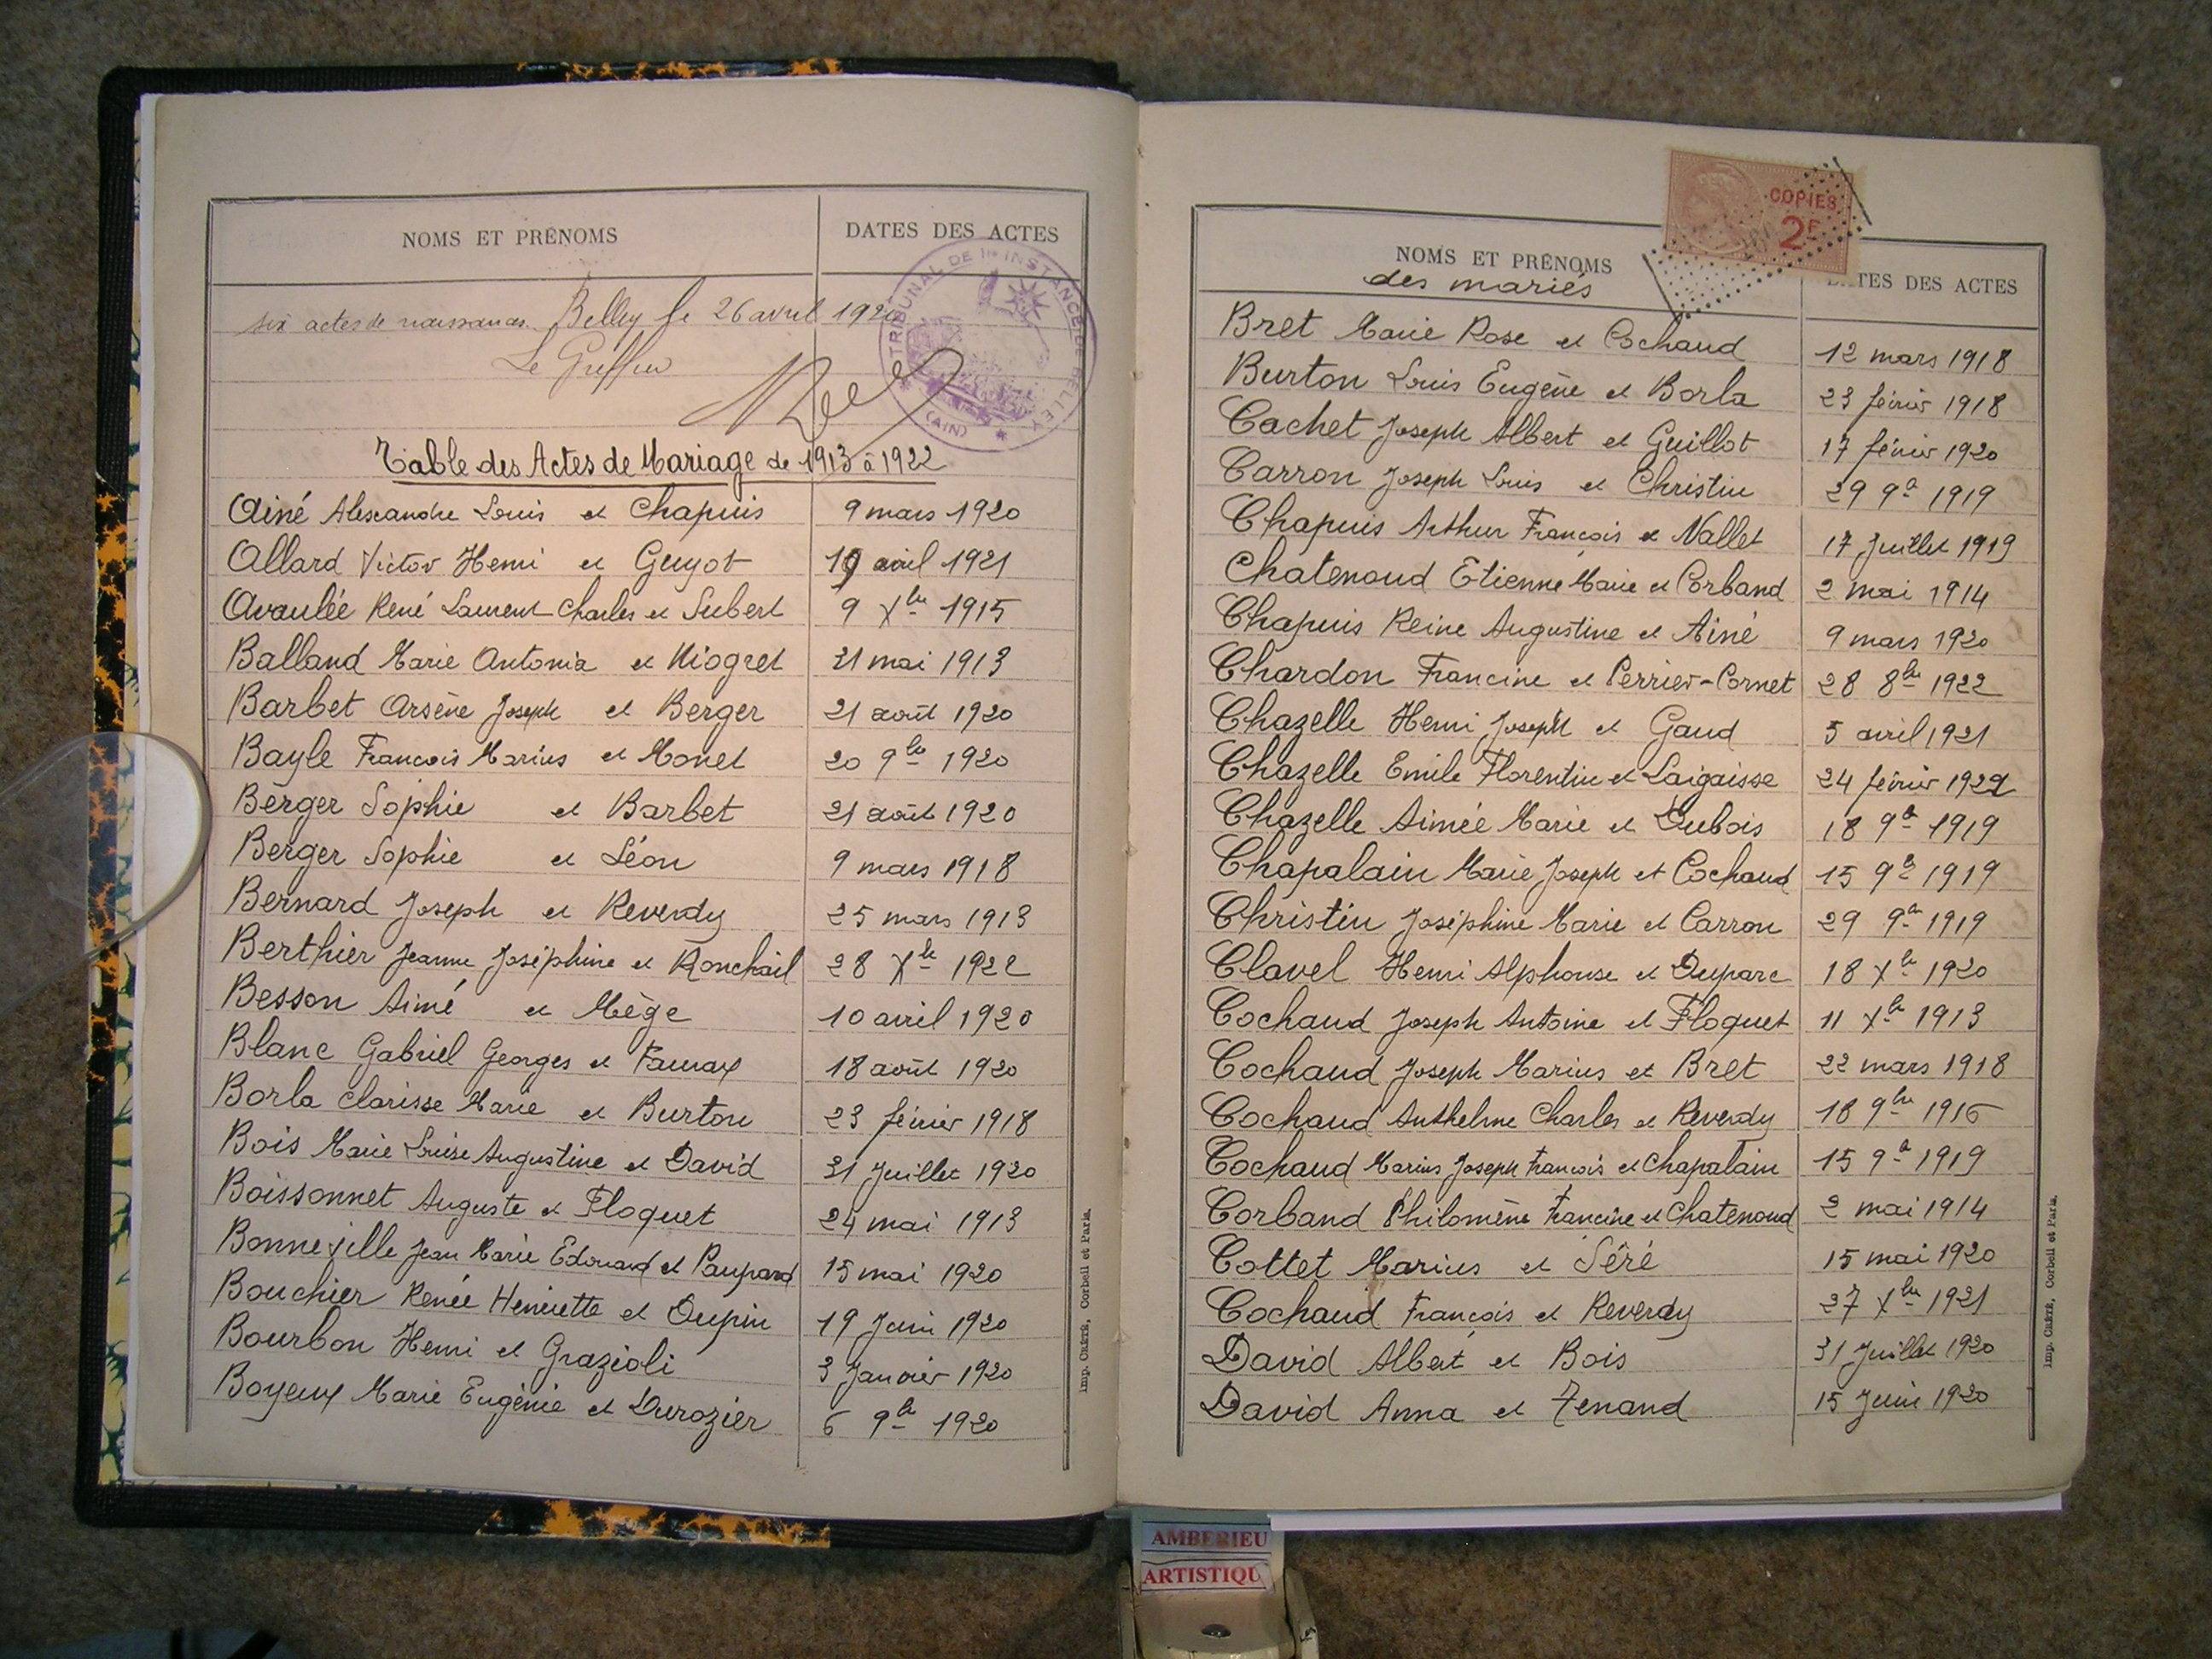 NOMS ET PRÉNOMS
DATES DES ACTES
six actes de naissances. Belley le 26 avril 192
Le Greffier
TRIBUNAL DE 1re INSTANCE DE BELLEY
(AIN)
Table des Actes de Mariage de 1913 à 1922
Ainé Alexandre Louis et Chapuis 9 mars 1920
Allard Victor Henri et Guyot 19 avril 1921
Avaulée René Laurent Charles et Subert 9 Xbre 1915
Balland Marie Antonia et Niogret 31 mai 1913
Barbet Arsène Joseph et Berger 21 août 1920
Bayle François Marius et Monet 20 9bre 1920
Berger Sophie et Barbet 21 août 1920
Berger Sophie et Léon 9 mars 1918
Bernard Joseph et Reverdy 25 mars 1913
Berthier Jeanne Joséphine et Ronchail 28 Xbre 1922
Besson Aimé et Mège 10 avril 1920
Blanc Gabriel Georges et 18 août 1920
Borla Clarisse Marie et Burton 23 février 1918
Bois Marie Louise Augustine et David 31 Juillet 1920
Boissonnet Auguste et Floquet 24 mai 1913
Bonneville Jean Marie Edouard et Paupard 15 mai 1920
Bouchier Renée Henriette et Dupin 19 Juin 1920
Bourbon Henri et Grazioli 3 Janvier 1920
Boyeux Marie Eugénie et Durozier 6 9bre 1920
Imp. CRÉTÉ, Corbeil et Paris.
COPIES
2F
NOMS ET PRÉNOMS
des mariés
TES DES ACTES
Bret Marie Rose et Cochaud 12 mars 1918
Burton Louis Eugène et Borla 23 février 1918
Cachet Joseph Albert et Guillot 17 février 1920
Carron Joseph Louis et Christin 29 9bre 1919
Chapuis Arthur François et Nallet 17 Juillet 1919
Chatenoud Etienne Marie et Corband 2 mai 1914
Chapuis Reine Augustine et Ainé 9 mars 1920
Chardon Francine et Perrier-Cornet 28 8bre 1922
Chazelle Henri Joseph et Gaud 5 avril 1921
Chazelle Emile Florentin et Laigaisse 24 février 1922
Chazelle Aimée Marie et Dubois 18 9bre 1919
Chapalain Marie Joseph et Cochaud 15 9bre 1919
Christin Joséphine Marie et Carron 29 9bre 1919
Clavel Henri Alphonse et Duparc 18 Xbre 1920
Cochaud Joseph Antoine et Floquet 11 Xbre 1913
Cochaud Joseph Marius et Bret 22 mars 1918
Cochaud Anthelme Charles et Reverdy 18 9bre 1916
Cochaud Marius Joseph François et Chapalain 15 9bre 1919
Corband Philomène Francine et Chatenoud 2 mai 1914
Cottet Marius et Séré 15 mai 1920
Cochaud François et Reverdy 27 Xbre 1921
David Albert et Bois 31 Juillet 1920
David Anna et Tenand 15 Juin 1920
Imp. CRÉTÉ, Corbeil et Paris.
AMBERIEU
ARTISTIQU